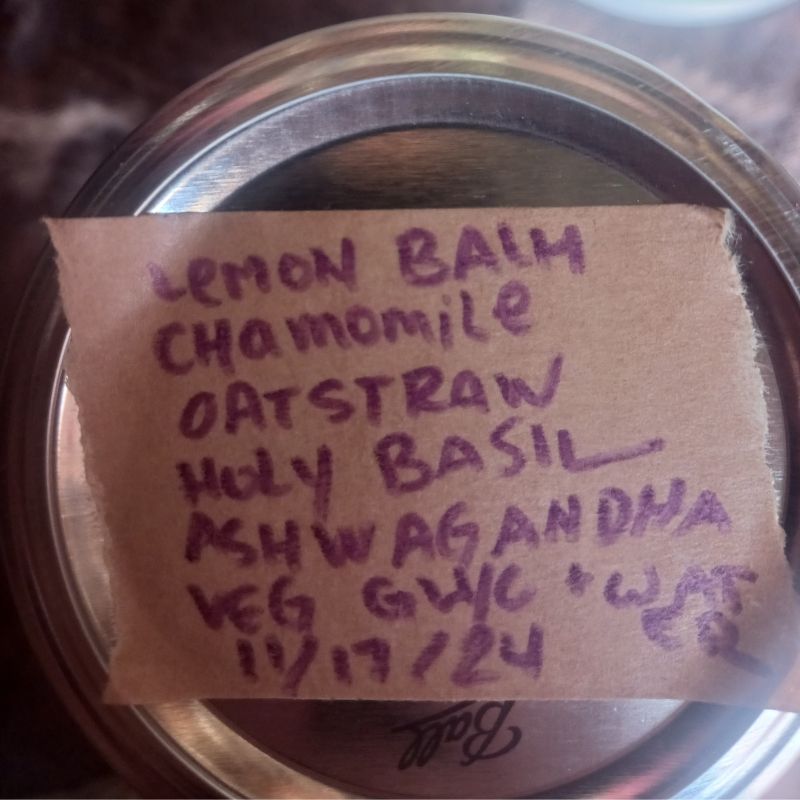 LEMON BALM
CHamomiLe
OATSTRAW
HOLY BASIL
ASHWAGANDHA
VEG GLY/C + WATER
11/17/24
Ball